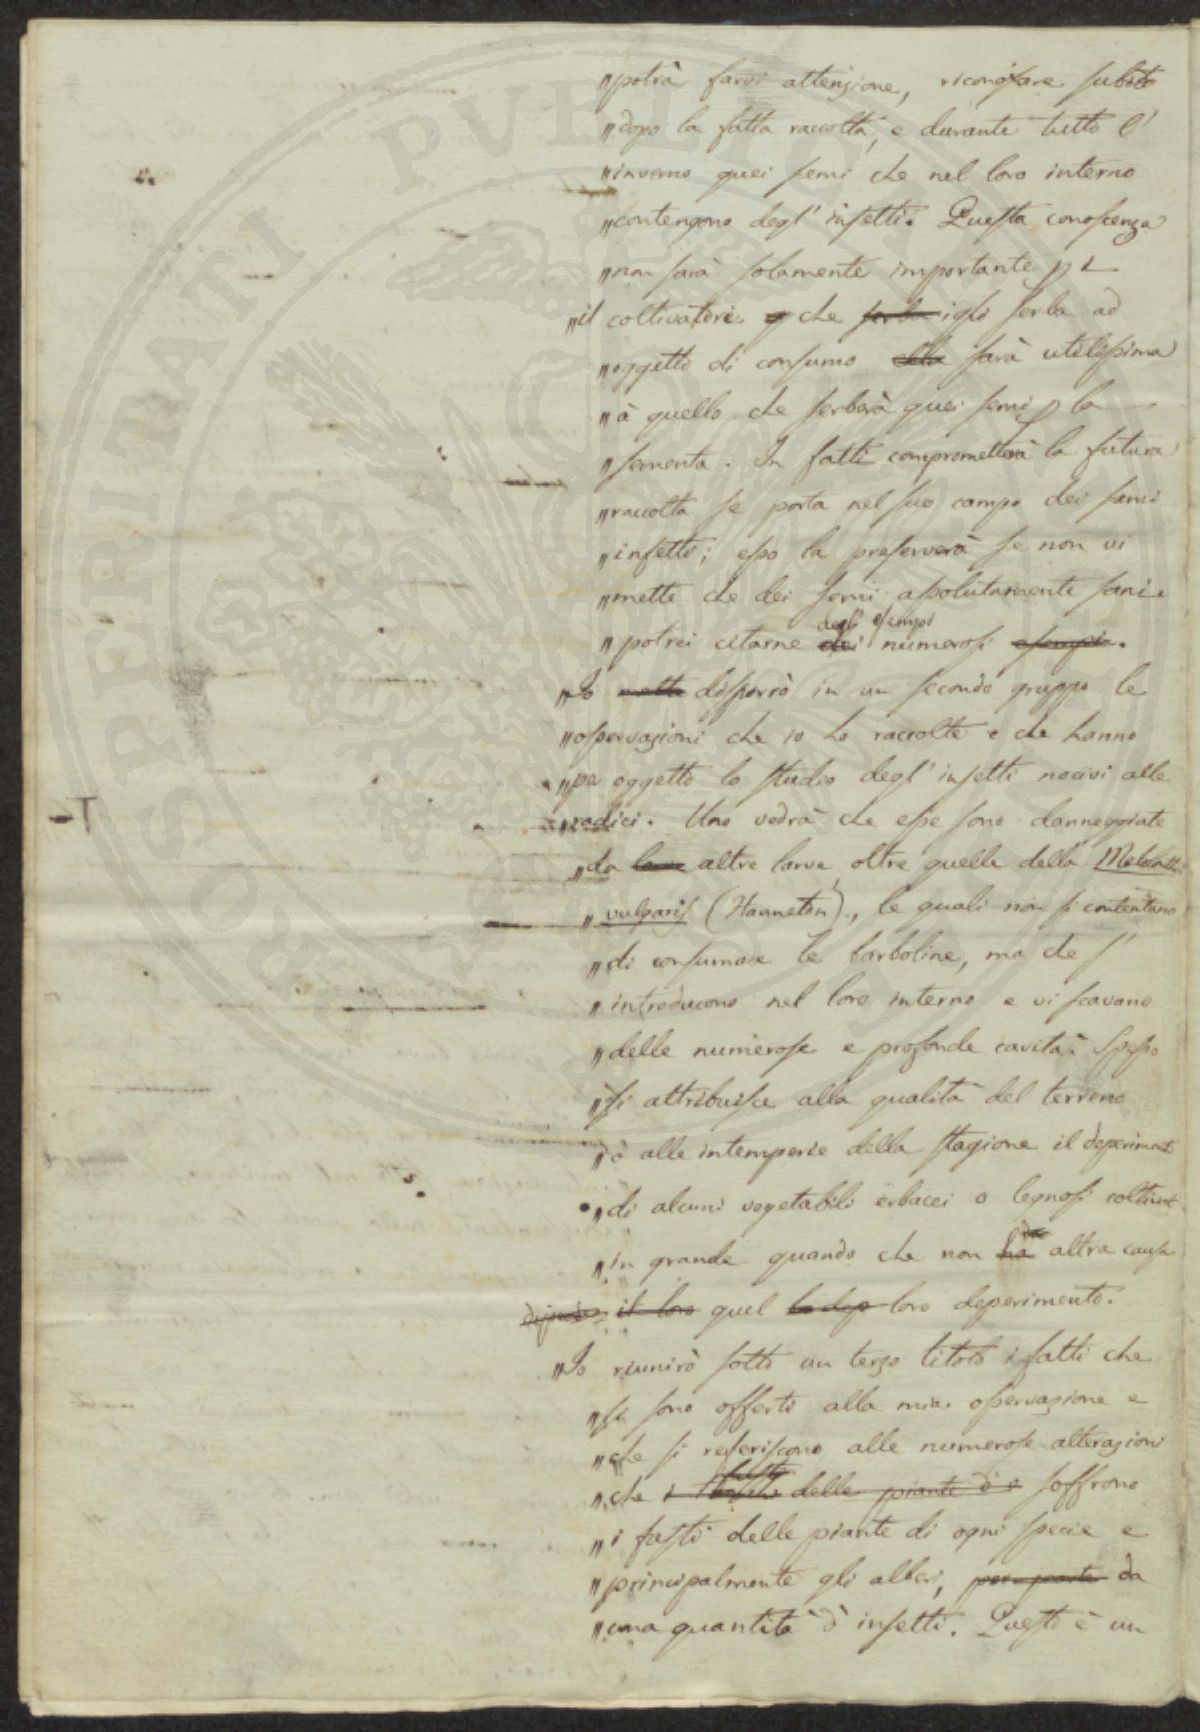 "potrà farvi attenzione, riconoscere subito
"dopo la fatta raccolta, e durante tutto l'
"inverno quei semi che nel loro interno
"contengono degl' insetti. Questa conoscenza
"non sarà solamente importante p
"il coltivatore che serba igli serba ad
"oggetto di consumo ella sarà utilissima
"à quello che serberà quei semi p la
"sementa. In fatti comprometterà la futura
"raccolta se porta nel suo campo dei semi
"infetti; esso la preserverà se non vi
"mette che dei semi assolutamente sani.
degli esempi
"potrei citarne dei numerosi esempi.
"Io metto disporrò in un secondo gruppo le
"osservazioni che io ho raccolte e che hanno
"per oggetto lo studio degl' insetti nocivi alle
"radici. Uno vedrà che esse sono danneggiate
"da larve altre larve oltre quelle della Melolont.
"vulgaris (Hanneton), le quali non si contentano
"di consumare le barboline, ma che s'
"introducono nel loro interno e vi scavano
"delle numerose e profonde cavità. Spesso
"si attribuisce alla qualità del terreno
"ò alle intemperie della stagione il deperiment
"di alcuni vegetabili erbacei o legnosi coltivat
"in grande quando che non ha altra causa
il loro quel loro deperimento.
"Io riunirò sotto un terzo titolo i fatti che
"si sono offerti alla mia osservazione e
"che si referiscono alle numerose alterazioni
fusti
"che i delle piante d soffrono
"i fusti delle piante di ogni specie e
"principalmente gli alberi, per parte da
"una quantità d' insetti. Questo è un
PROSPERITATI PVBLICAE
T